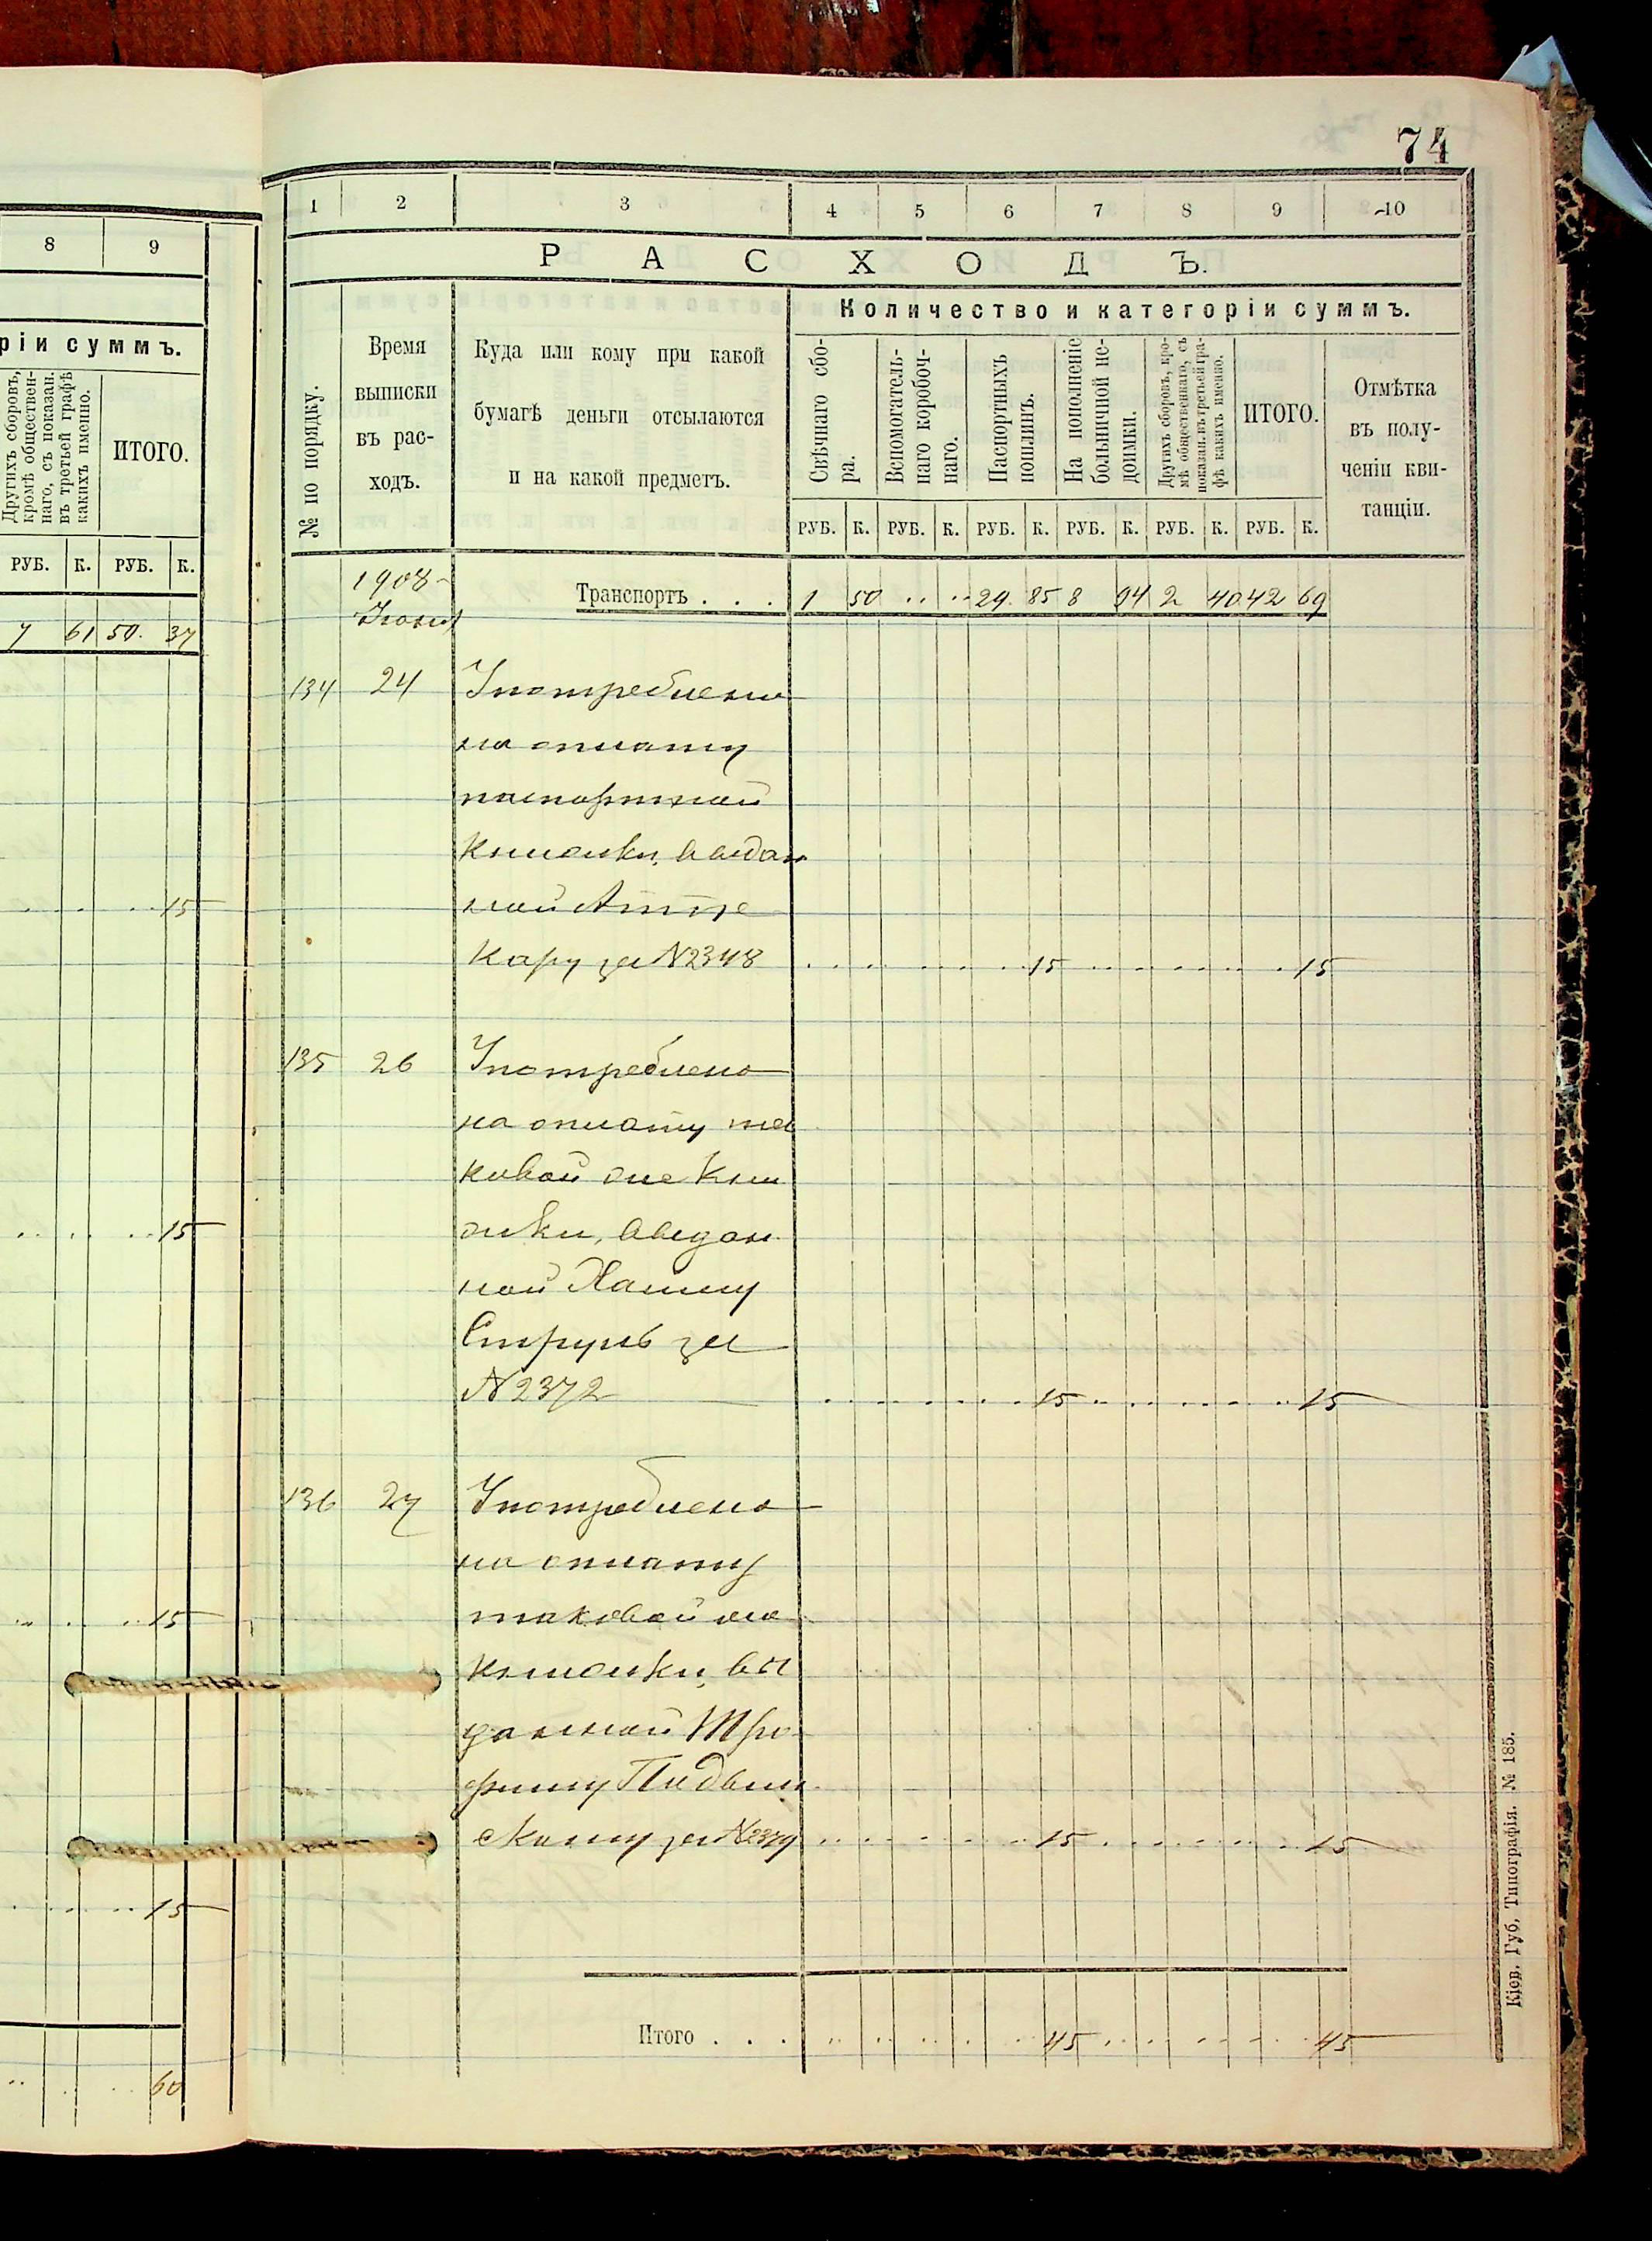 74
8 9
ріи суммъ.
Другихъ сборовъ,
кромѣ обществен-
наго, съ показан.
въ третьей графѣ
какихъ именно.
ИТОГО.
РУБ. К. РУБ. К.
7 61 50. 37
15
15
15
15
60
1 2 3 4 5 6 7 8 9 10
РАСХОДЪ.
Количество и категоріи суммъ.
№ по порядку.
Время
выписки
въ рас-
ходъ.
Куда или кому при какой
бумагѣ деньги отсылаются
и на какой предметъ.
Свѣчнаго сбо-
ра.
Вспомогатель-
наго коробоч-
наго.
Паспортныхъ
пошлинъ.
На пополненіе
больничной не-
доимки.
Другихъ сборовъ, кро-
мѣ общественнаго, съ
показан. въ третьей гра-
фѣ какихъ именно.
ИТОГО.
Отмѣтка
въ полу-
ченіи кви-
танціи.
РУБ. К. РУБ. К. РУБ. К. РУБ. К. РУБ. К. РУБ. К.
1908
Іюня
Транспортъ . . . 1 50 29. 85 8 94 2 40 42 69
134 24 Употреблено
на оплату
паспортной
книжки, выдан
ной
Кару за N2348 15 15
135 26 Употреблено
на оплату та
ковой же кни
жки, выдан
ной
за
N2372 15 15
136 27 Употреблено
на оплату
таковой же
книжки, вы
данной Тро
фиму
скому за N2379 15 15
Итого . . . 45 45
Кіев. Губ. Типографія. № 185.